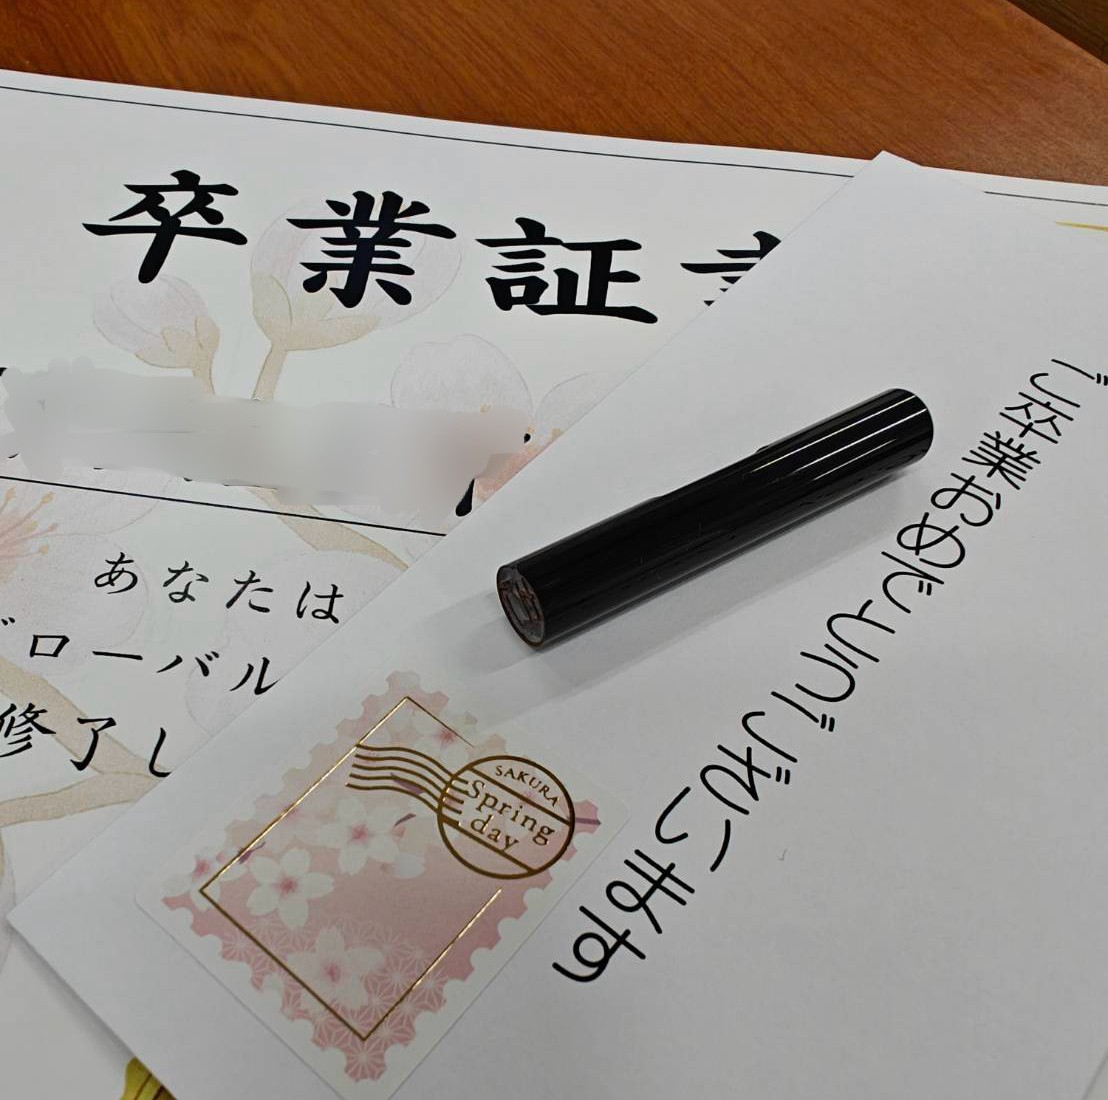 卒業証
あなたは
グローバル
修了し
ご卒業おめでとうございます
SAKURA
Spring
day